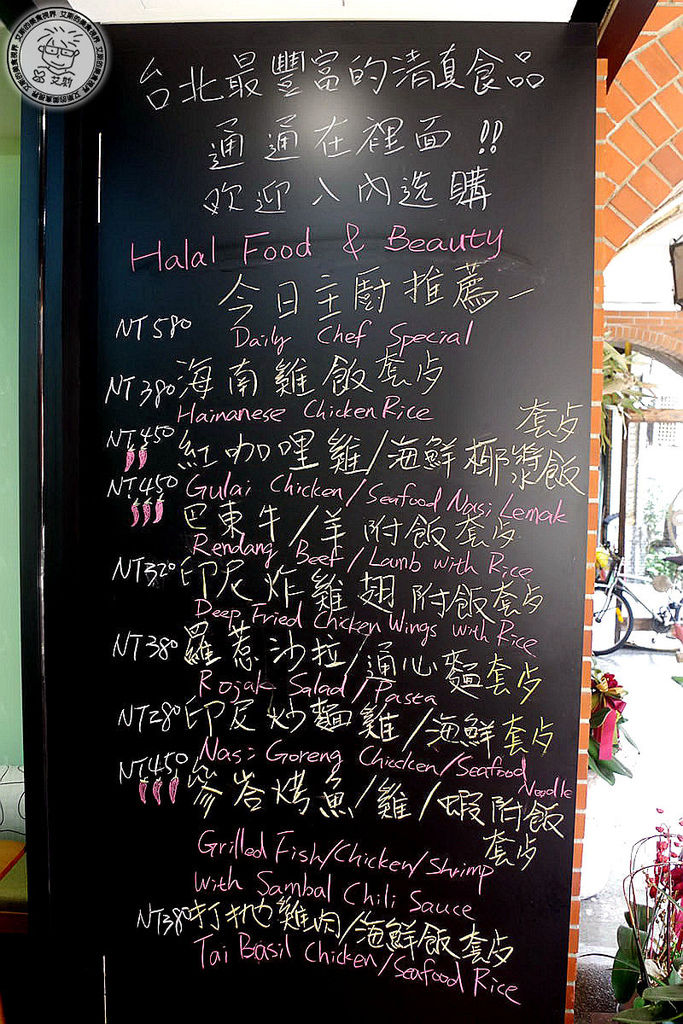 艾斯的美食視界
艾斯
台北最豐富的清真食品
通通在裡面!!
欢迎入內选購
Halal Food & Beauty
今日主廚推薦–
NT 580 Daily Chef Special
NT 380 海南雞飯套歺
Hainanese Chicken Rice
NT 450 紅咖哩雞/海鮮椰漿飯套歺
Gulai Chicken/Seafood Nasi Lemak
NT 450 巴東牛/羊附飯套歺
Rendang Beef/Lamb with Rice
NT 320 印尼炸雞翅附飯套歺
Deep Fried Chicken Wings with Rice
NT 380 羅惹沙拉/通心麵套歺
Rojak Salad/Pasta
NT 280 印尼炒麵雞/海鮮套歺
Nasi Goreng Chicken/Seafood Noodle
NT 450 參峇烤魚/雞/蝦附飯套歺
Grilled Fish/Chicken/Shrimp
with Sambal Chili Sauce
NT 380 打抛雞肉/海鮮飯套歺
Tai Basil Chicken/Seafood Rice